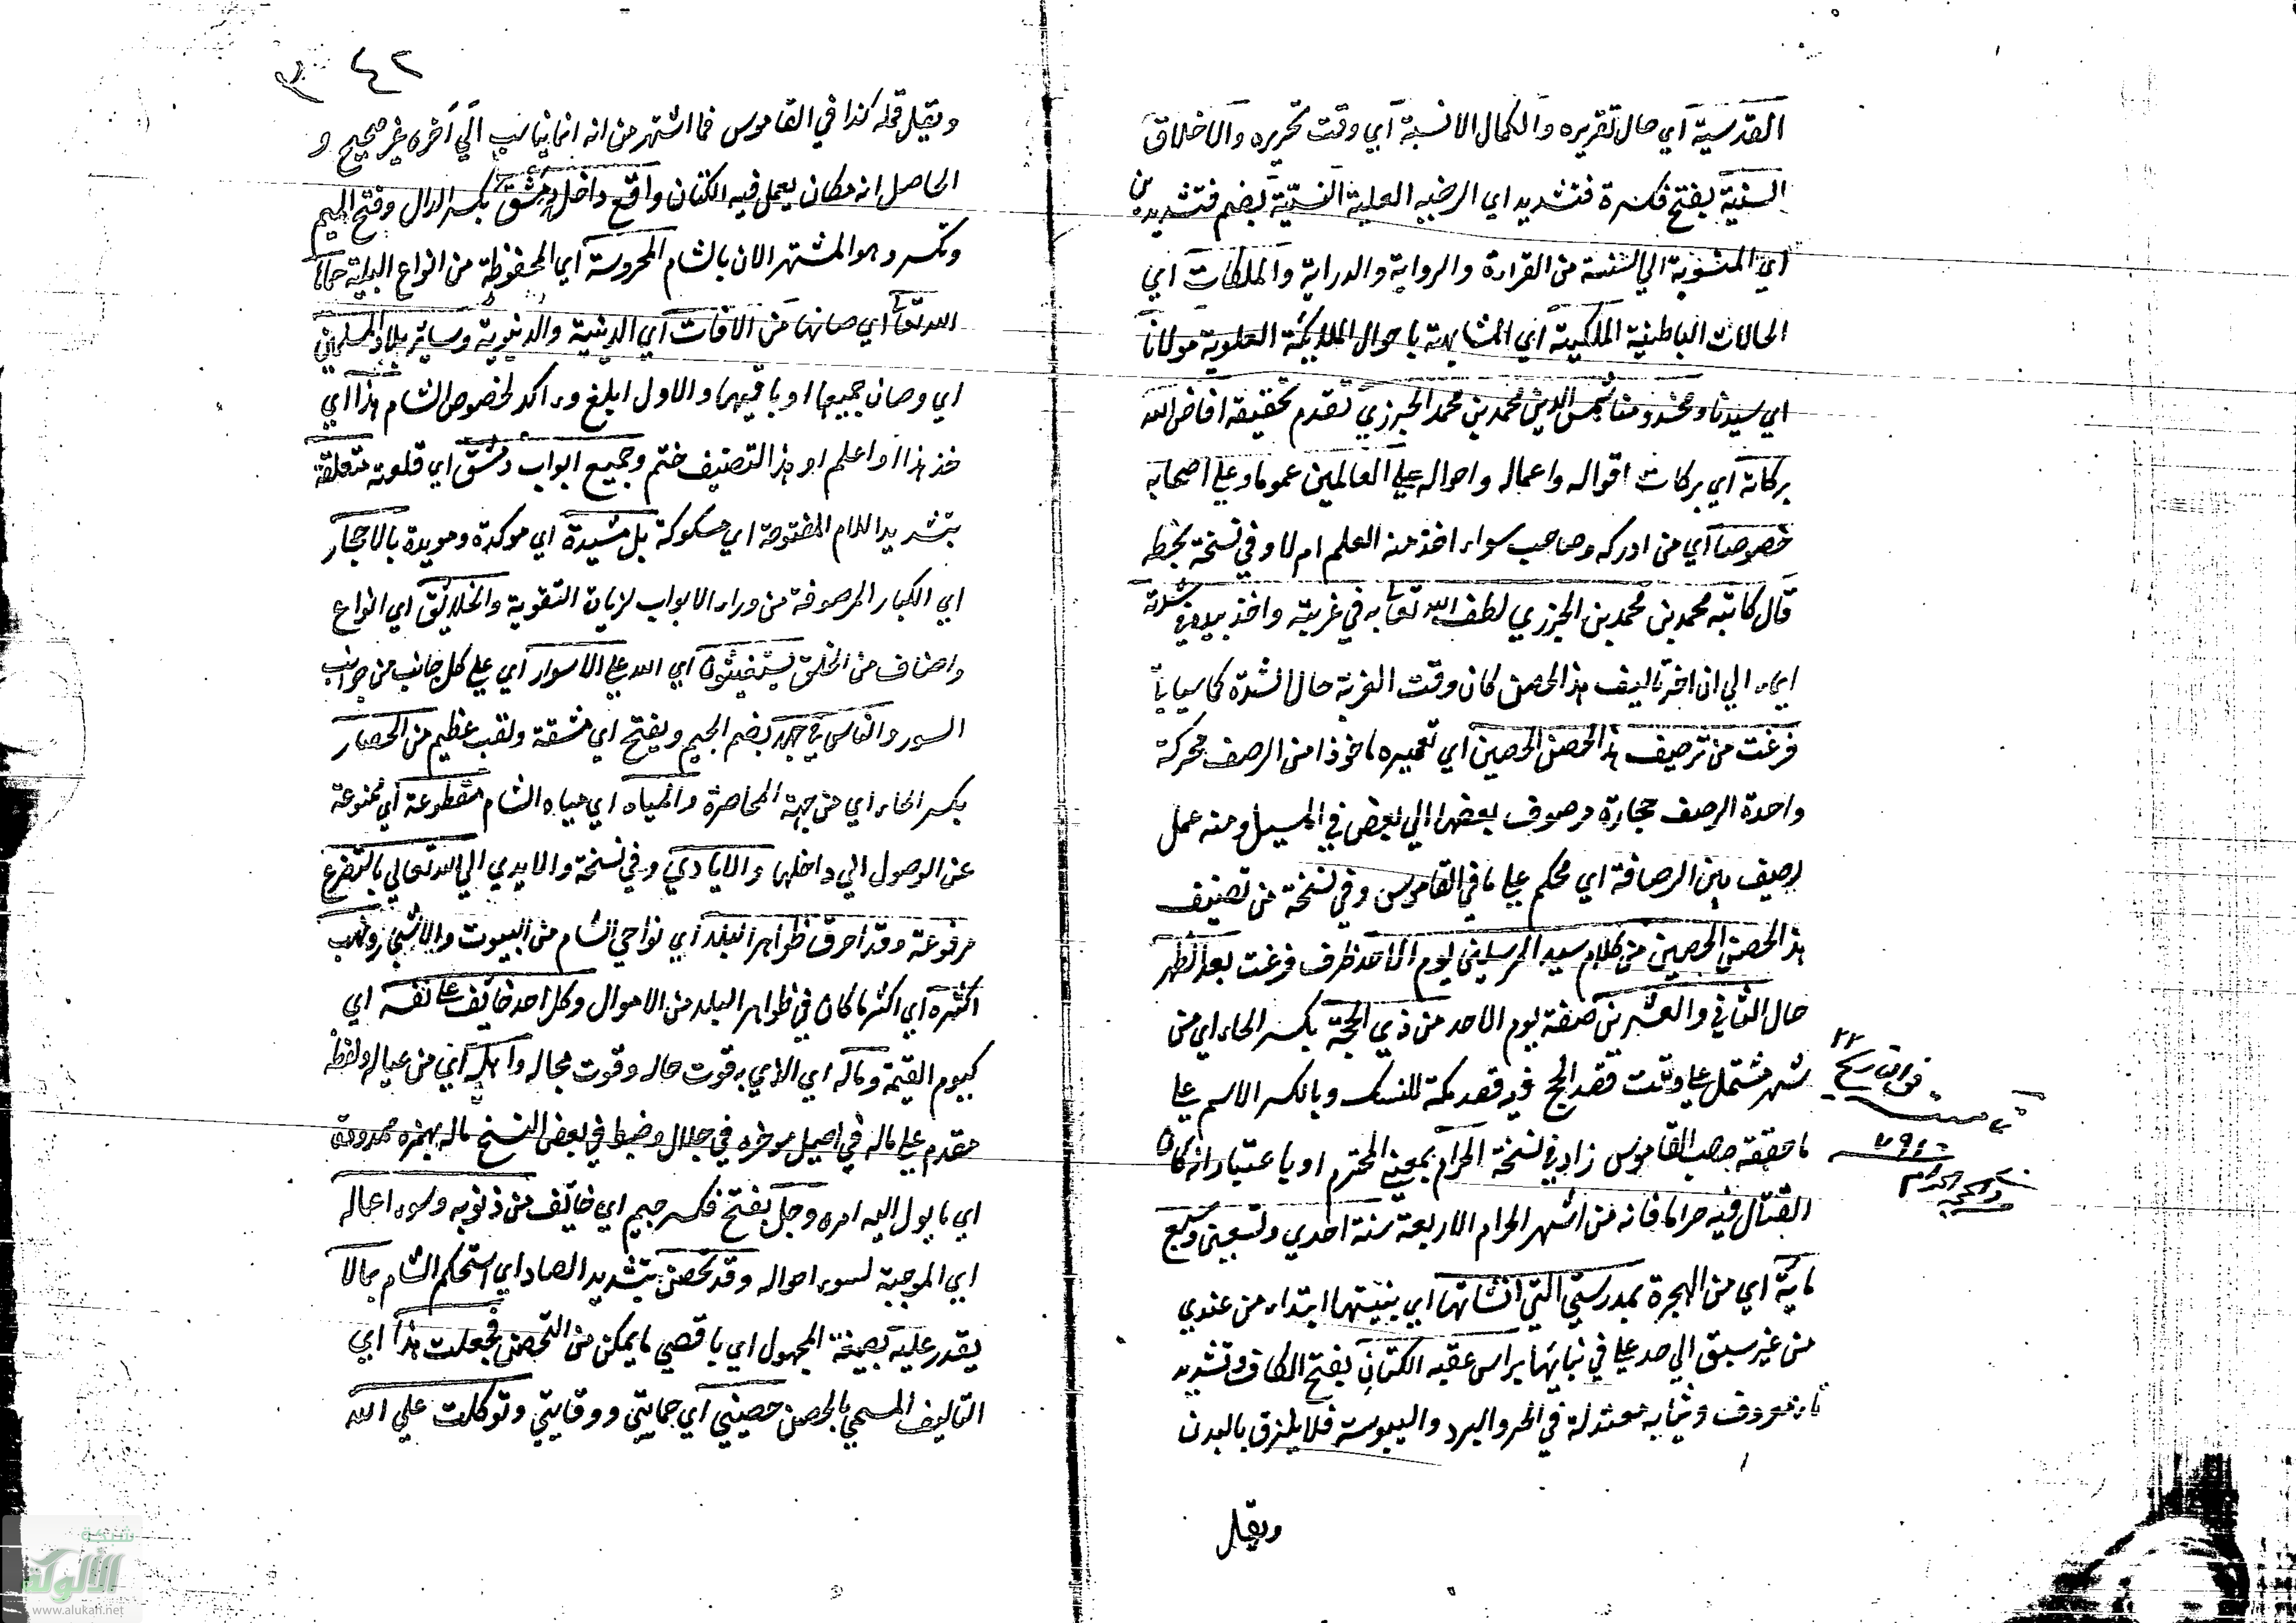 القدسية أي حال تقريره والكمال الانسية أي وقت تحريره والاخلاق
السنية بفتح فكسرة فتشديد اي الرضيه العلية السنية بضم فتشديدين
أي المنسوبة الي السنة من القراءة والرواية والدراية والملكات أي
الحالات الباطنية الملكية أي المشابهة باحوال الملايكة العلوية مولانا
اي سيدنا ومخدومنا شمس الدين محمد بن محمد الجزري تقدم تحقيقه افاض الله
بركاته أي بركات اقواله واعماله واحواله علي العالمين عموما وعلي اصحابه
خصوصا أي من ادركه وصاحب سواء اخذ منه العلم ام لا وفي نسخة بخطه
قال كاتبه محمد بن محمد بن الجزري لطف الله تعا به في غربته واخذ بيده في شدته
ايماء الي ان اخر تاليف هذا الحصن كان وقت الغربة حال الشدة كما سياتي
فرغت من ترصيف هذا الحصن الحصين اي تعميره ماخوذا من الرصف محركة
واحدة الرصف حجارة مرصوف بعضها الي بعض في المسيل ومنه عمل
رصيف بين الرصافة اي محكم علي ما في القاموس وفي نسخة من تصنيف
هذا الحصن الحصين من كلام سيد المرسلين يوم الاحد ظرف فرغت بعد الظهر
حال الثاني والعشرين صفة يوم الاحد من ذي الحجة بكسر الحاء اي من
شهر مشتمل علي وقت قصد الحج فيه قصد مكة للنسك وبالكسر الاسم علي
ما حققه صاحب القاموس زاد في نسخة الحرام بمعني المحترم او باعتبار انه كان
القتال فيه حراما فانه من اشهر الحرام الاربعة سنة احدي وتسعين وسبع
ماية أي من الهجرة بمدرستي التي انشاتها اي بنيتها ابتداء من عندي
من غير سبق الي احد علي في بنائها براس عقبه الكتان بفتح الكاف وتشديد
تاء معروف وثيابه معتدلة في الحر والبرد واليبوسة فلا يلزق بالبدن
ويقل
٢٢
٧٩١
ذي الحجة الحرام
٤٢
ويقل قمله كذا في القاموس فما اشتهر من انه انما يناسب الي آخره غير صحيح و
الحاصل انه مكان يعمل فيه الكتان واقع داخل دمشق بكسر الدال وفتح الميم
وتكسر وهو المشتهر الان بالشام المحروسة أي المحفوظة من انواع البلية حماها
الله تعا أي صانها من الافات أي الدينية والدنيوية وسائر بلاد المسلمين
اي وصان جميعها او باقيهما والاول ابلغ وءاكد لخصوص الشام هذا اي
خذ هذا او اعلم او هذا التصنيف ختم وجميع ابواب دمشق اي قلعته مغلقة
بتشديد اللام المفتوحة اي مسكوكة بل مشيدة اي موكدة ومويدة بالاحجار
اي الكبار المرصوفة من وراء الابواب لزيادة التقوية والخلائق اي انواع
واصناف من الخلق يستغيثون أي الله علي الاسوار أي علي كل جانب من جوانب
السور والناس في جهد بضم الجيم ويفتح اي مشقة وتعب عظيم من الحصار
بكسر الحاء اي من جهة المحاصرة والمياه اي مياه الشام مقطوعة أي ممنوعة
عن الوصول الي داخلها والايادي وفي نسخة والايدي الي الله تعالي بالتضرع
مرفوعة وقد احرق ظواهر البلد أي نواحي الشام من البيوت والاشجار ونهب
اكثره أي اكثر ما كان في ظواهر البلد من الاموال وكل احد خائف علي نفسه اي
كيوم القيمة وماله اي الذي به قوت حاله وقوت مجاله واهله أي من عياله ولفظ
مقدم علي ماله في اصيل موخره في جلال وضبط في بعض النسخ ماله بهمزه ممدودة
اي ما يول اليه امره وجل بفتح فكسر جيم اي خائف من ذنوبه وسوء اعماله
اي الموجبة لسوء احواله وقد تحصن بتشديد الصاد اي استحكم الشام بما لا
يقدر عليه بصيغة المجهول اي باقصي ما يمكن من التحصن فجعلت هذا اي
التاليف المسمي بالحصن حصيني أي حمايتي ووقايتي وتوكلت علي الله
شبكة
الألوكة
www.alukah.net